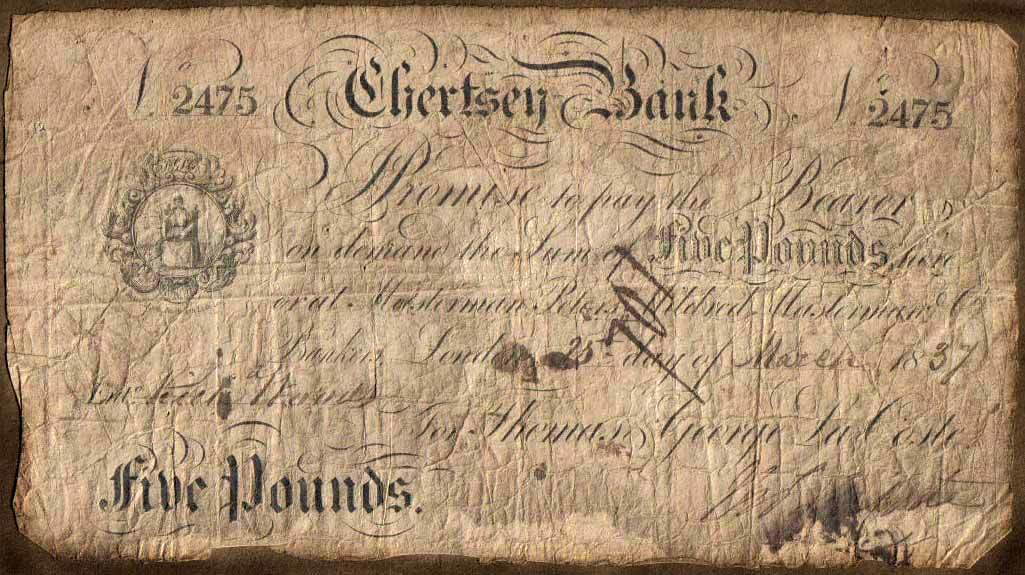 2475 Chertsey Bank 2475
I Promise to pay the Bearer
on demand the Sum of Five Pounds, here
or at Masterman, Peters, Mildred, Masterman & Co
Bankers London 25 day of March 1837
For Thomas, George La Coste
Five Pounds.